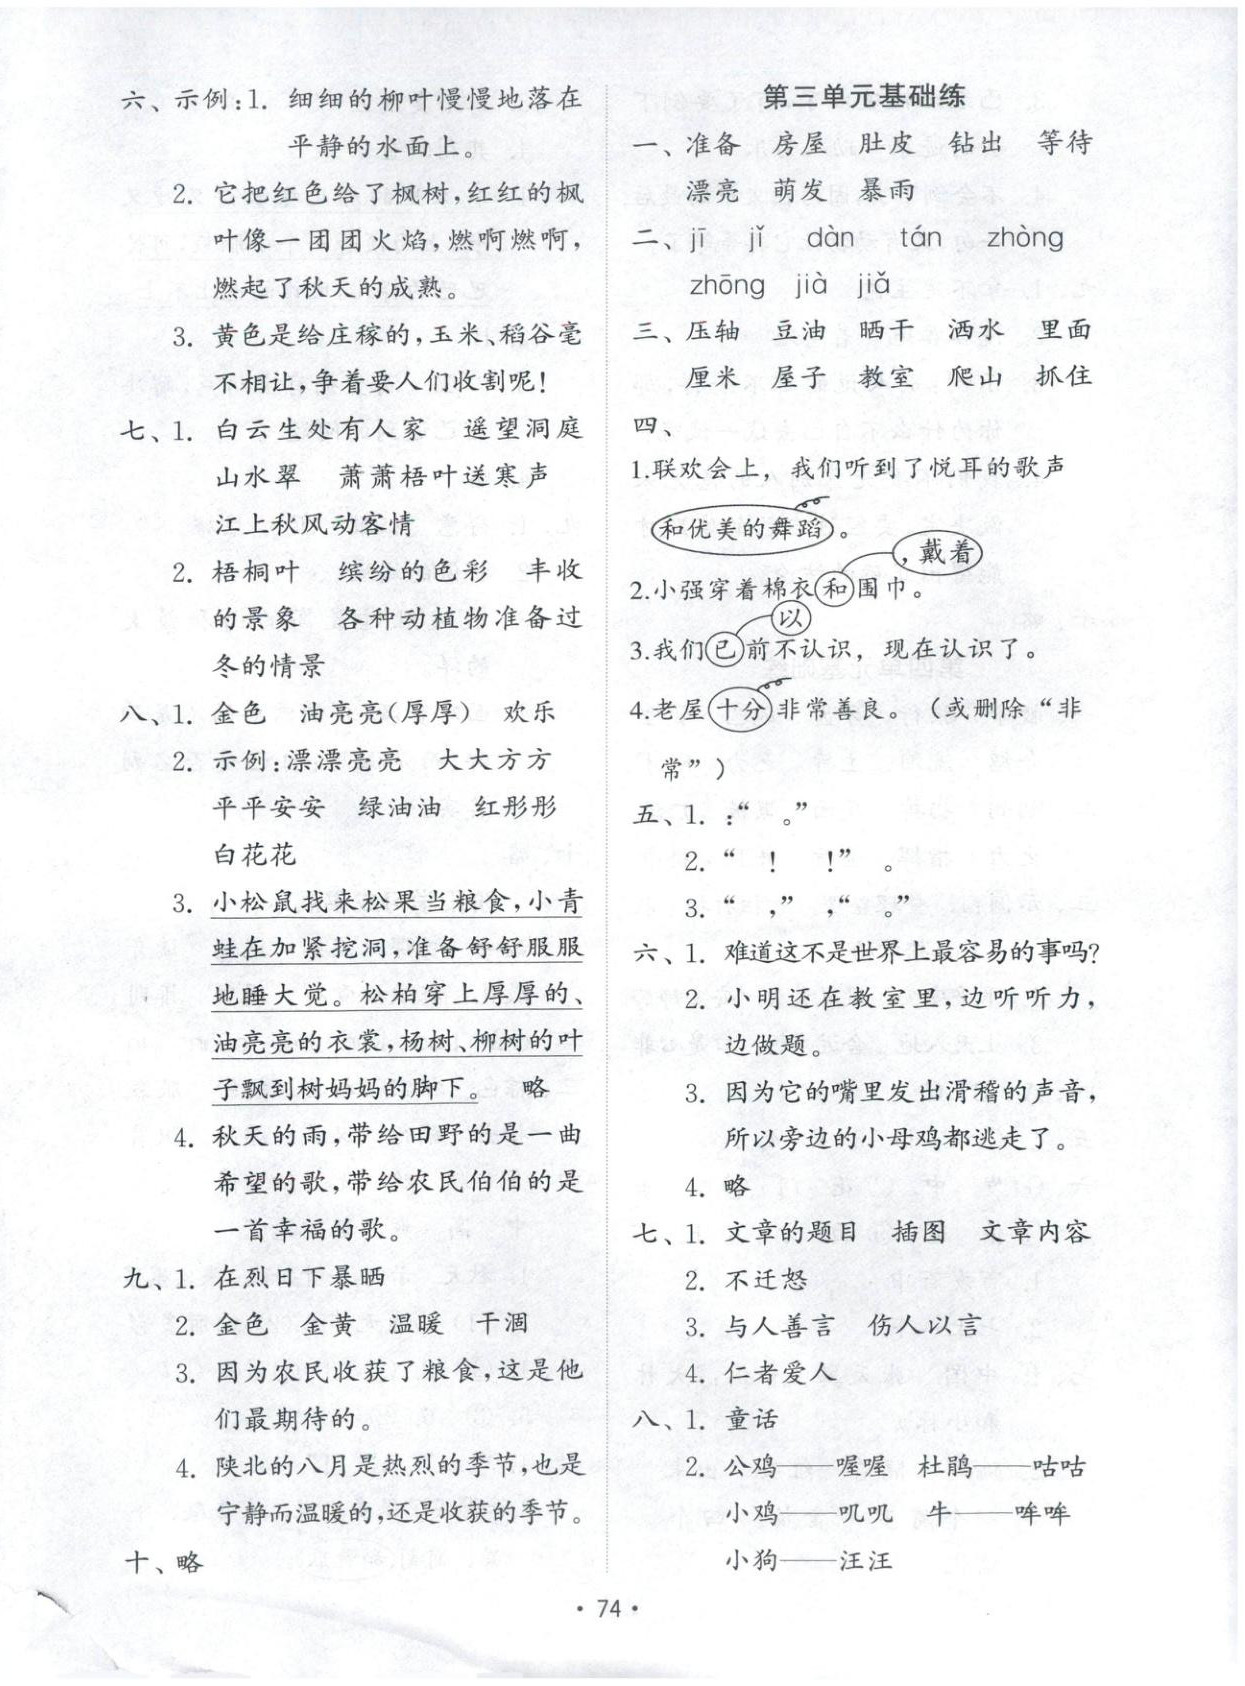 六、示例:1. 细细的柳叶慢慢地落在
平静的水面上。
2. 它把红色给了枫树,红红的枫
叶像一团团火焰,燃啊燃啊,
燃起了秋天的成熟。
3. 黄色是给庄稼的,玉米、稻谷毫
不相让,争着要人们收割呢!
七、1. 白云生处有人家 遥望洞庭
山水翠 萧萧梧叶送寒声
江上秋风动客情
2. 梧桐叶 缤纷的色彩 丰收
的景象 各种动植物准备过
冬的情景
八、1. 金色 油亮亮(厚厚) 欢乐
2. 示例:漂漂亮亮 大大方方
平平安安 绿油油 红彤彤
白花花
3. 小松鼠找来松果当粮食,小青
蛙在加紧挖洞,准备舒舒服服
地睡大觉。松柏穿上厚厚的、
油亮亮的衣裳,杨树、柳树的叶
子飘到树妈妈的脚下。 略
4. 秋天的雨,带给田野的是一曲
希望的歌,带给农民伯伯的是
一首幸福的歌。
九、1. 在烈日下暴晒
2. 金色 金黄 温暖 干涸
3. 因为农民收获了粮食,这是他
们最期待的。
4. 陕北的八月是热烈的季节,也是
宁静而温暖的,还是收获的季节。
十、略
第三单元基础练
一、准备 房屋 肚皮 钻出 等待
漂亮 萌发 暴雨
二、jī jǐ dàn tán zhòng
zhōng jià jiǎ
三、压轴 豆油 晒干 洒水 里面
厘米 屋子 教室 爬山 抓住
四、
1.联欢会上，我们听到了悦耳的歌声
和优美的舞蹈。
，戴着
2.小强穿着棉衣和围巾。
以
3.我们已前不认识，现在认识了。
4.老屋十分非常善良。（或删除“非
常”）
五、1. :“ 。”
2. “ ! !” 。
3. “ ,” ,“ 。”
六、1. 难道这不是世界上最容易的事吗?
2. 小明还在教室里,边听听力,
边做题。
3. 因为它的嘴里发出滑稽的声音,
所以旁边的小母鸡都逃走了。
4. 略
七、1. 文章的题目 插图 文章内容
2. 不迁怒
3. 与人善言 伤人以言
4. 仁者爱人
八、1. 童话
2. 公鸡——喔喔 杜鹃——咕咕
小鸡——叽叽 牛——哞哞
小狗——汪汪
• 74 •